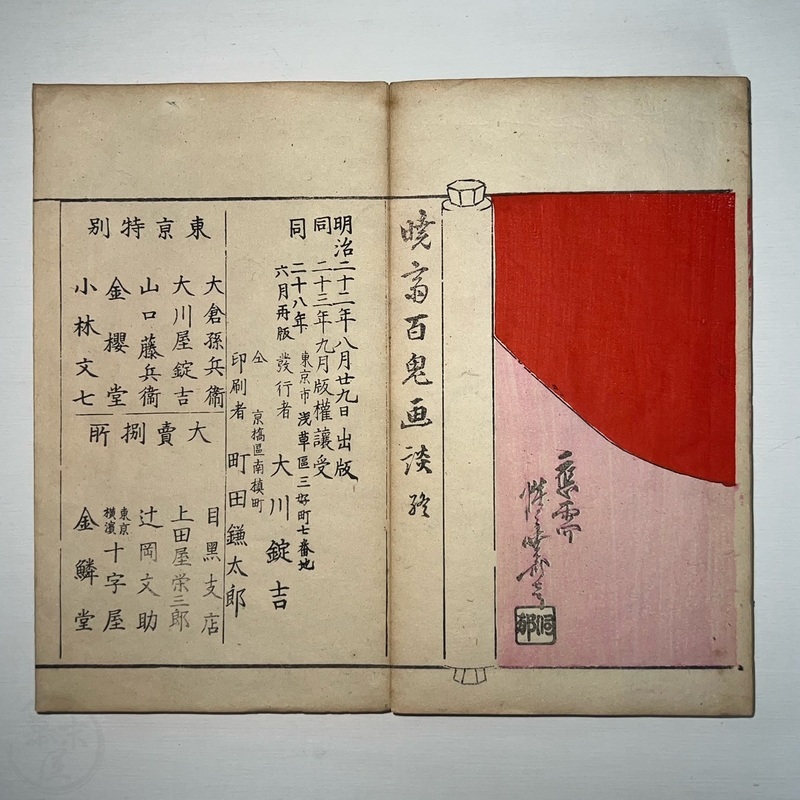 應需
惺々暁斎
洞郁
暁斎百鬼画談 終
明治二十二年八月廿九日出版
同二十三年九月版權讓受
同二十八年六月再版
東京市浅草區三好町七番地
發行者 大川錠吉
京橋區南槙町
仝 印刷者 町田鎌太郎
東京特別
大倉孫兵衞
大川屋錠吉
山口藤兵衞
金櫻堂
小林文七
大賣捌所
目黒支店
上田屋栄三郎
辻岡文助
東京横濱 十字屋
金鱗堂